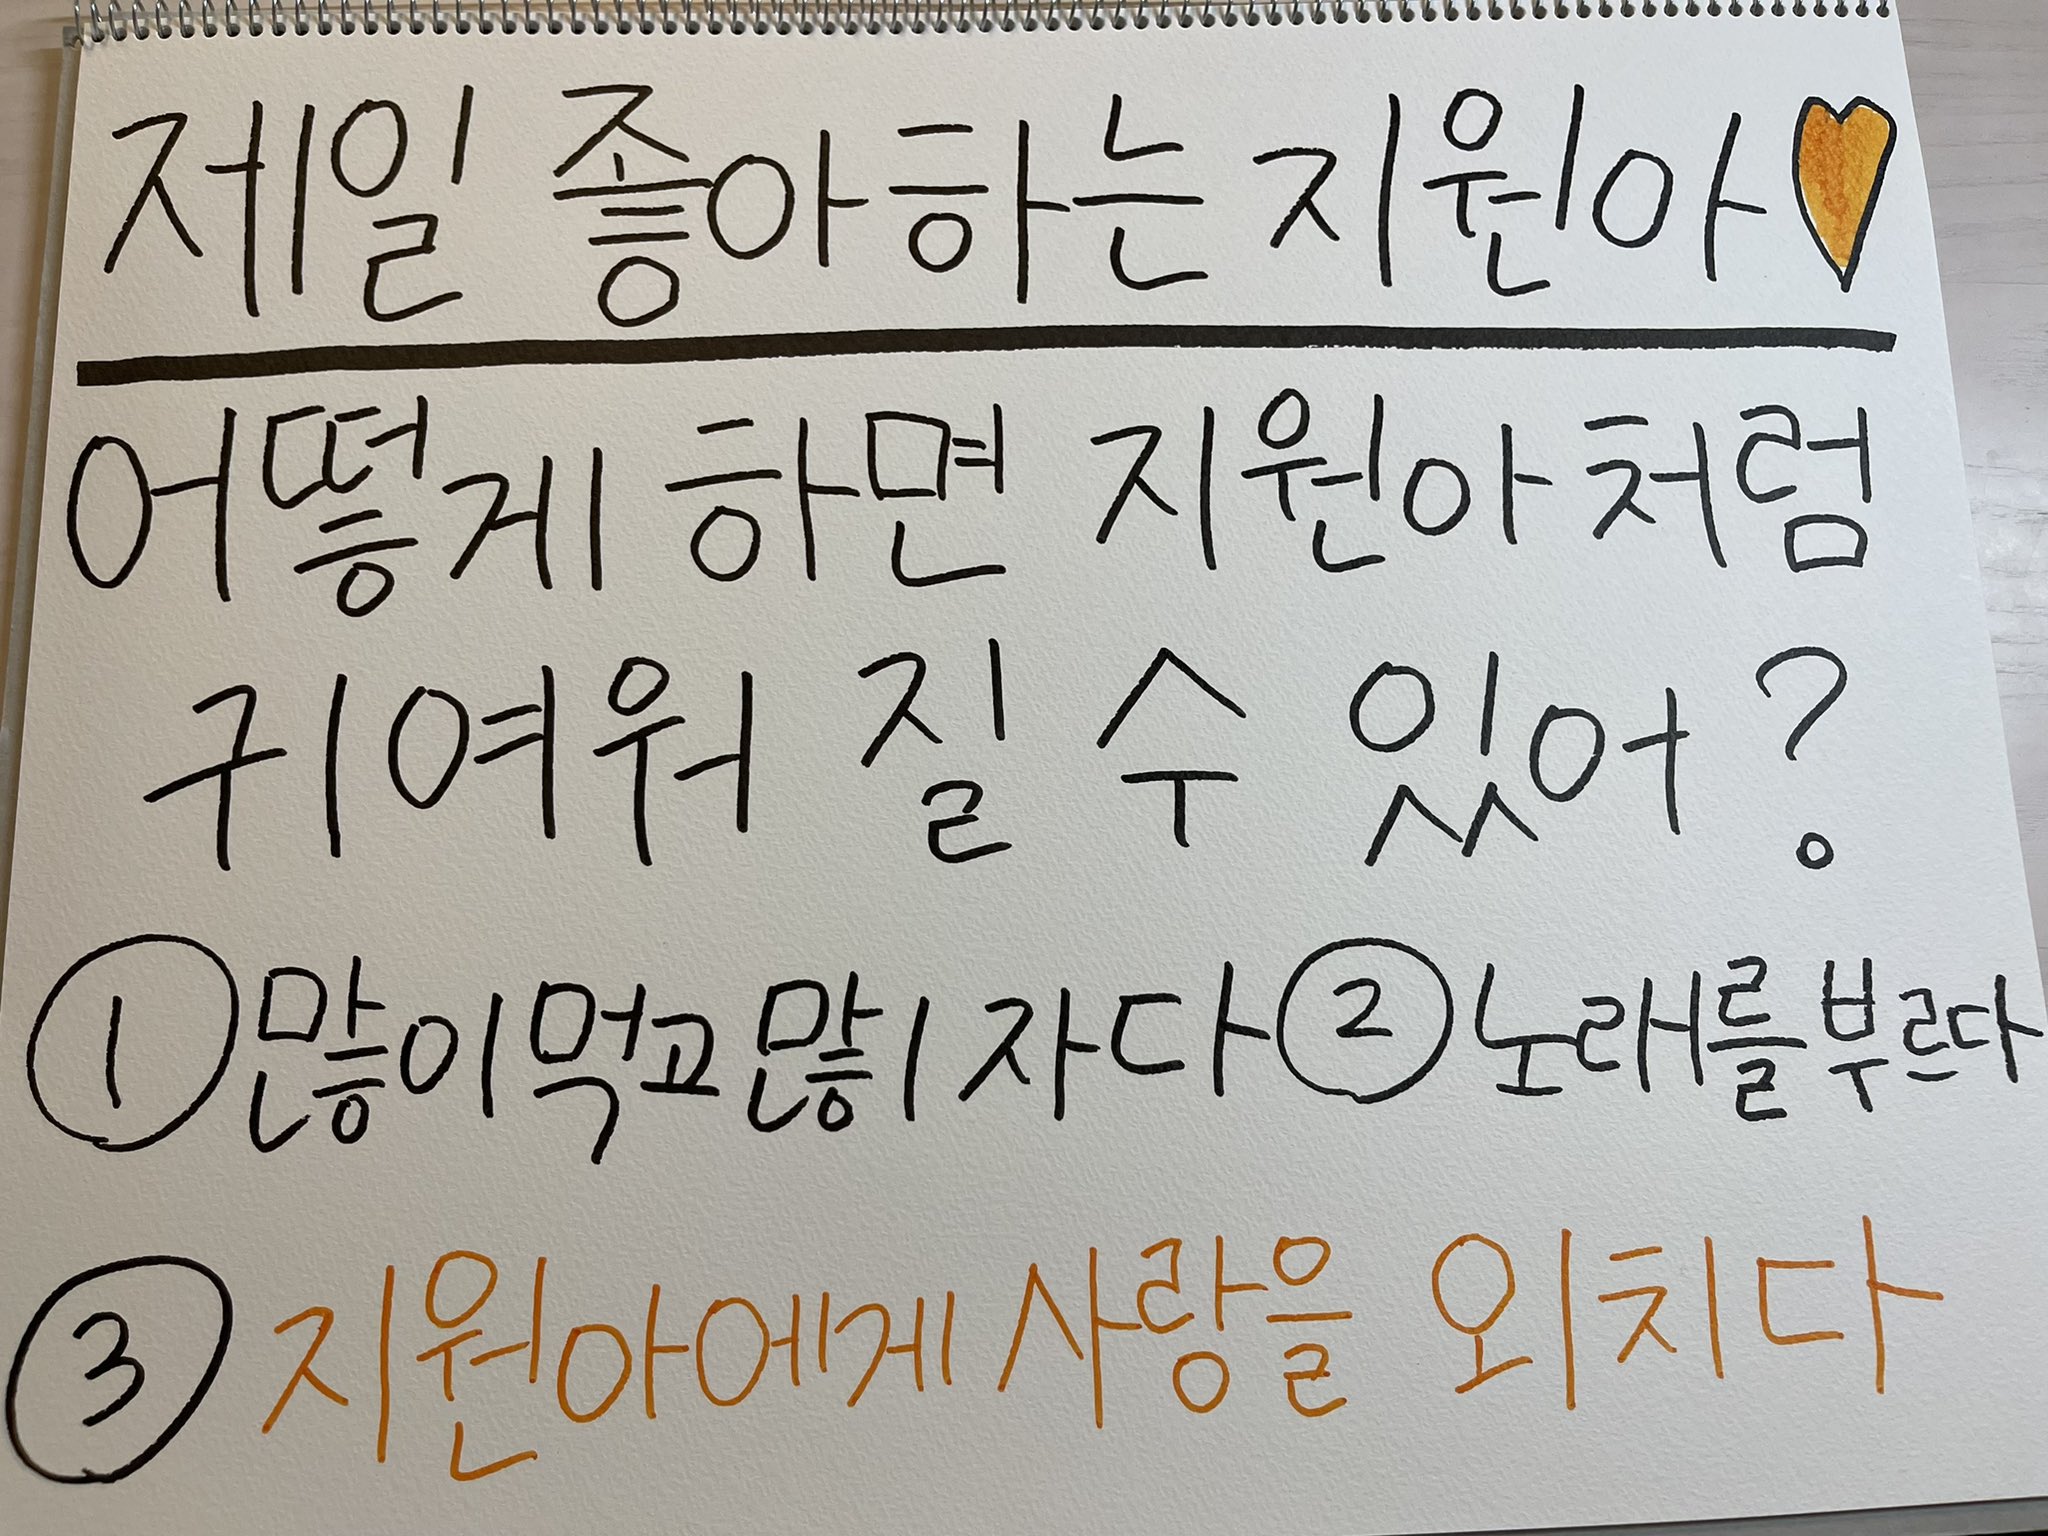 제일 좋아하는 지원아🧡
어떻게 하면 지원아처럼
귀여워 질 수 있어?
① 많이 먹고 많이 자다 ② 노래를 부르다
③ 지원아에게 사랑을 외치다